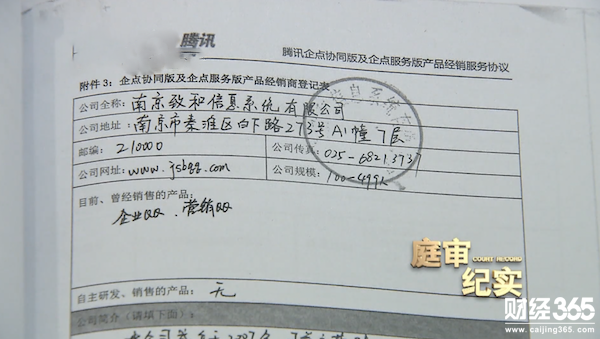 腾讯
腾讯企点协同版及企点服务版产品经销服务协议
附件3：企点协同版及企点服务版产品经销商登记表
公司全称：南京致和信息系统有限公司
公司地址：南京市秦淮区白下路273号A1幢7层
邮编：210000 公司传真：025-68213737
公司网址：www.jsbqq.com 公司规模：100-499人
目前、曾经销售的产品：
企业QQ、营销QQ
自主研发、销售的产品：无
公司简介（请填下面）：
信息系统有
庭审
COURT RECORD
纪实
财经365
www.caijing365.com